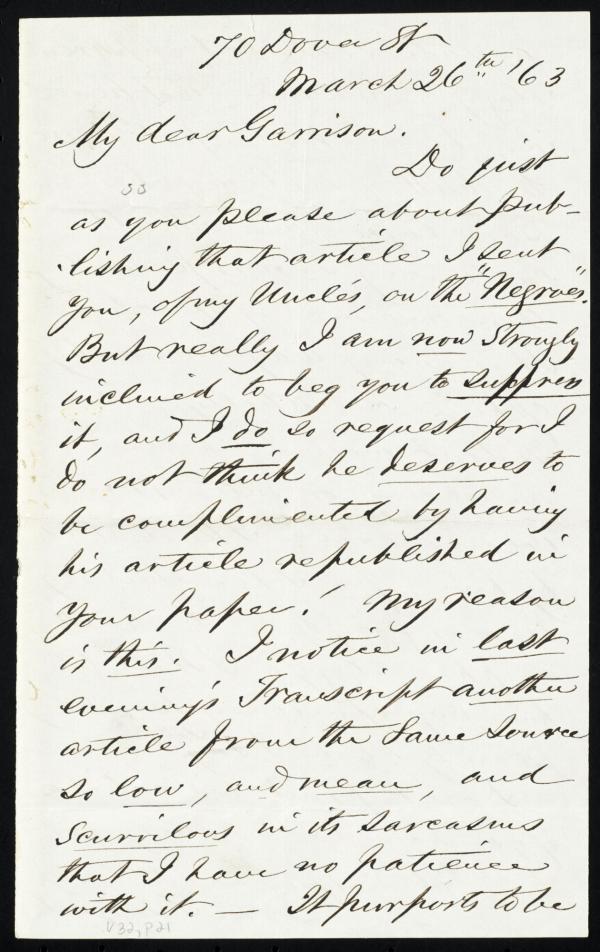 70 Dover St
March 26th '63
My dear Garrison.
Do just
33
as you please about pub-
lishing that article I sent
you, of my Uncle's, on the "Negroes".
But really I am now strongly
inclined to beg you to suppress
it, and I do so request for I
do not think he deserves to
be complimented by having
his article republished in
your paper! My reason
is this. I notice in last
evening's Transcript another
article from the same source
so low, and mean, and
scurrilous in its sarcasms
that I have no patience
with it. — It purports to be
V32, P21